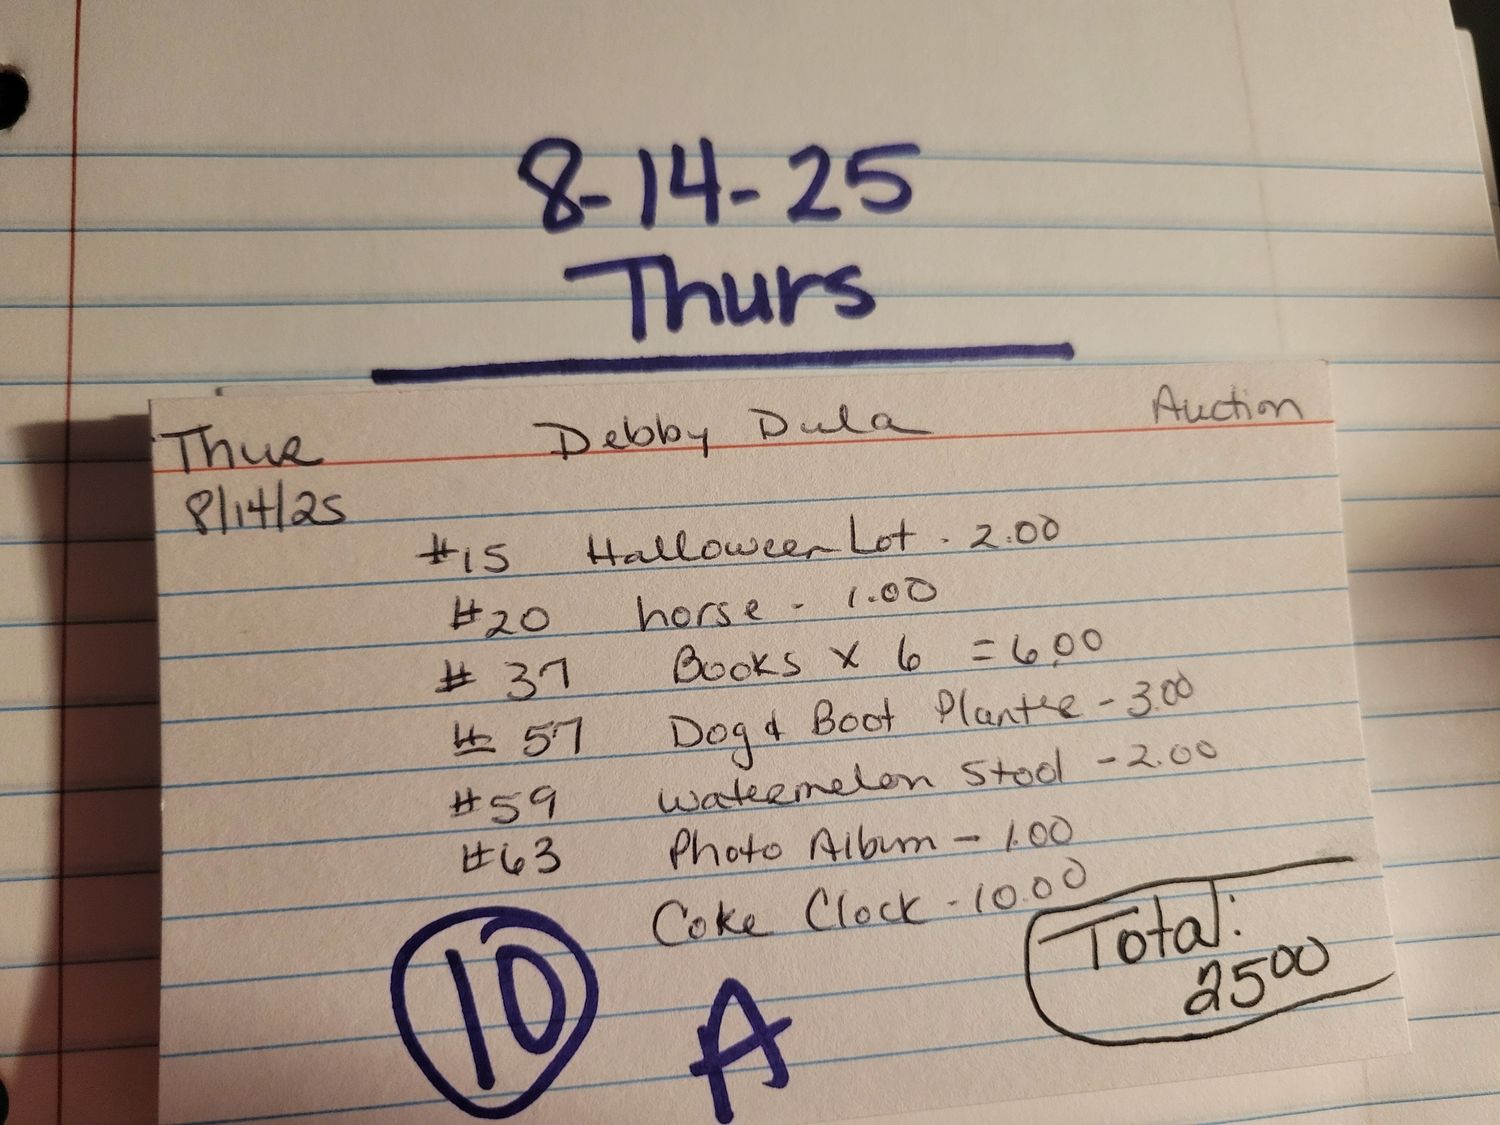 8-14-25
Thurs
Thur Debby Dula Auction
8/14/25
#15 Halloween Lot - 2.00
#20 horse - 1.00
# 37 Books x 6 = 6.00
# 57 Dog & Boot Planter - 3.00
#59 Watermelon Stool - 2.00
#63 Photo Album - 1.00
Coke Clock - 10.00
Total:
25 00
10
A